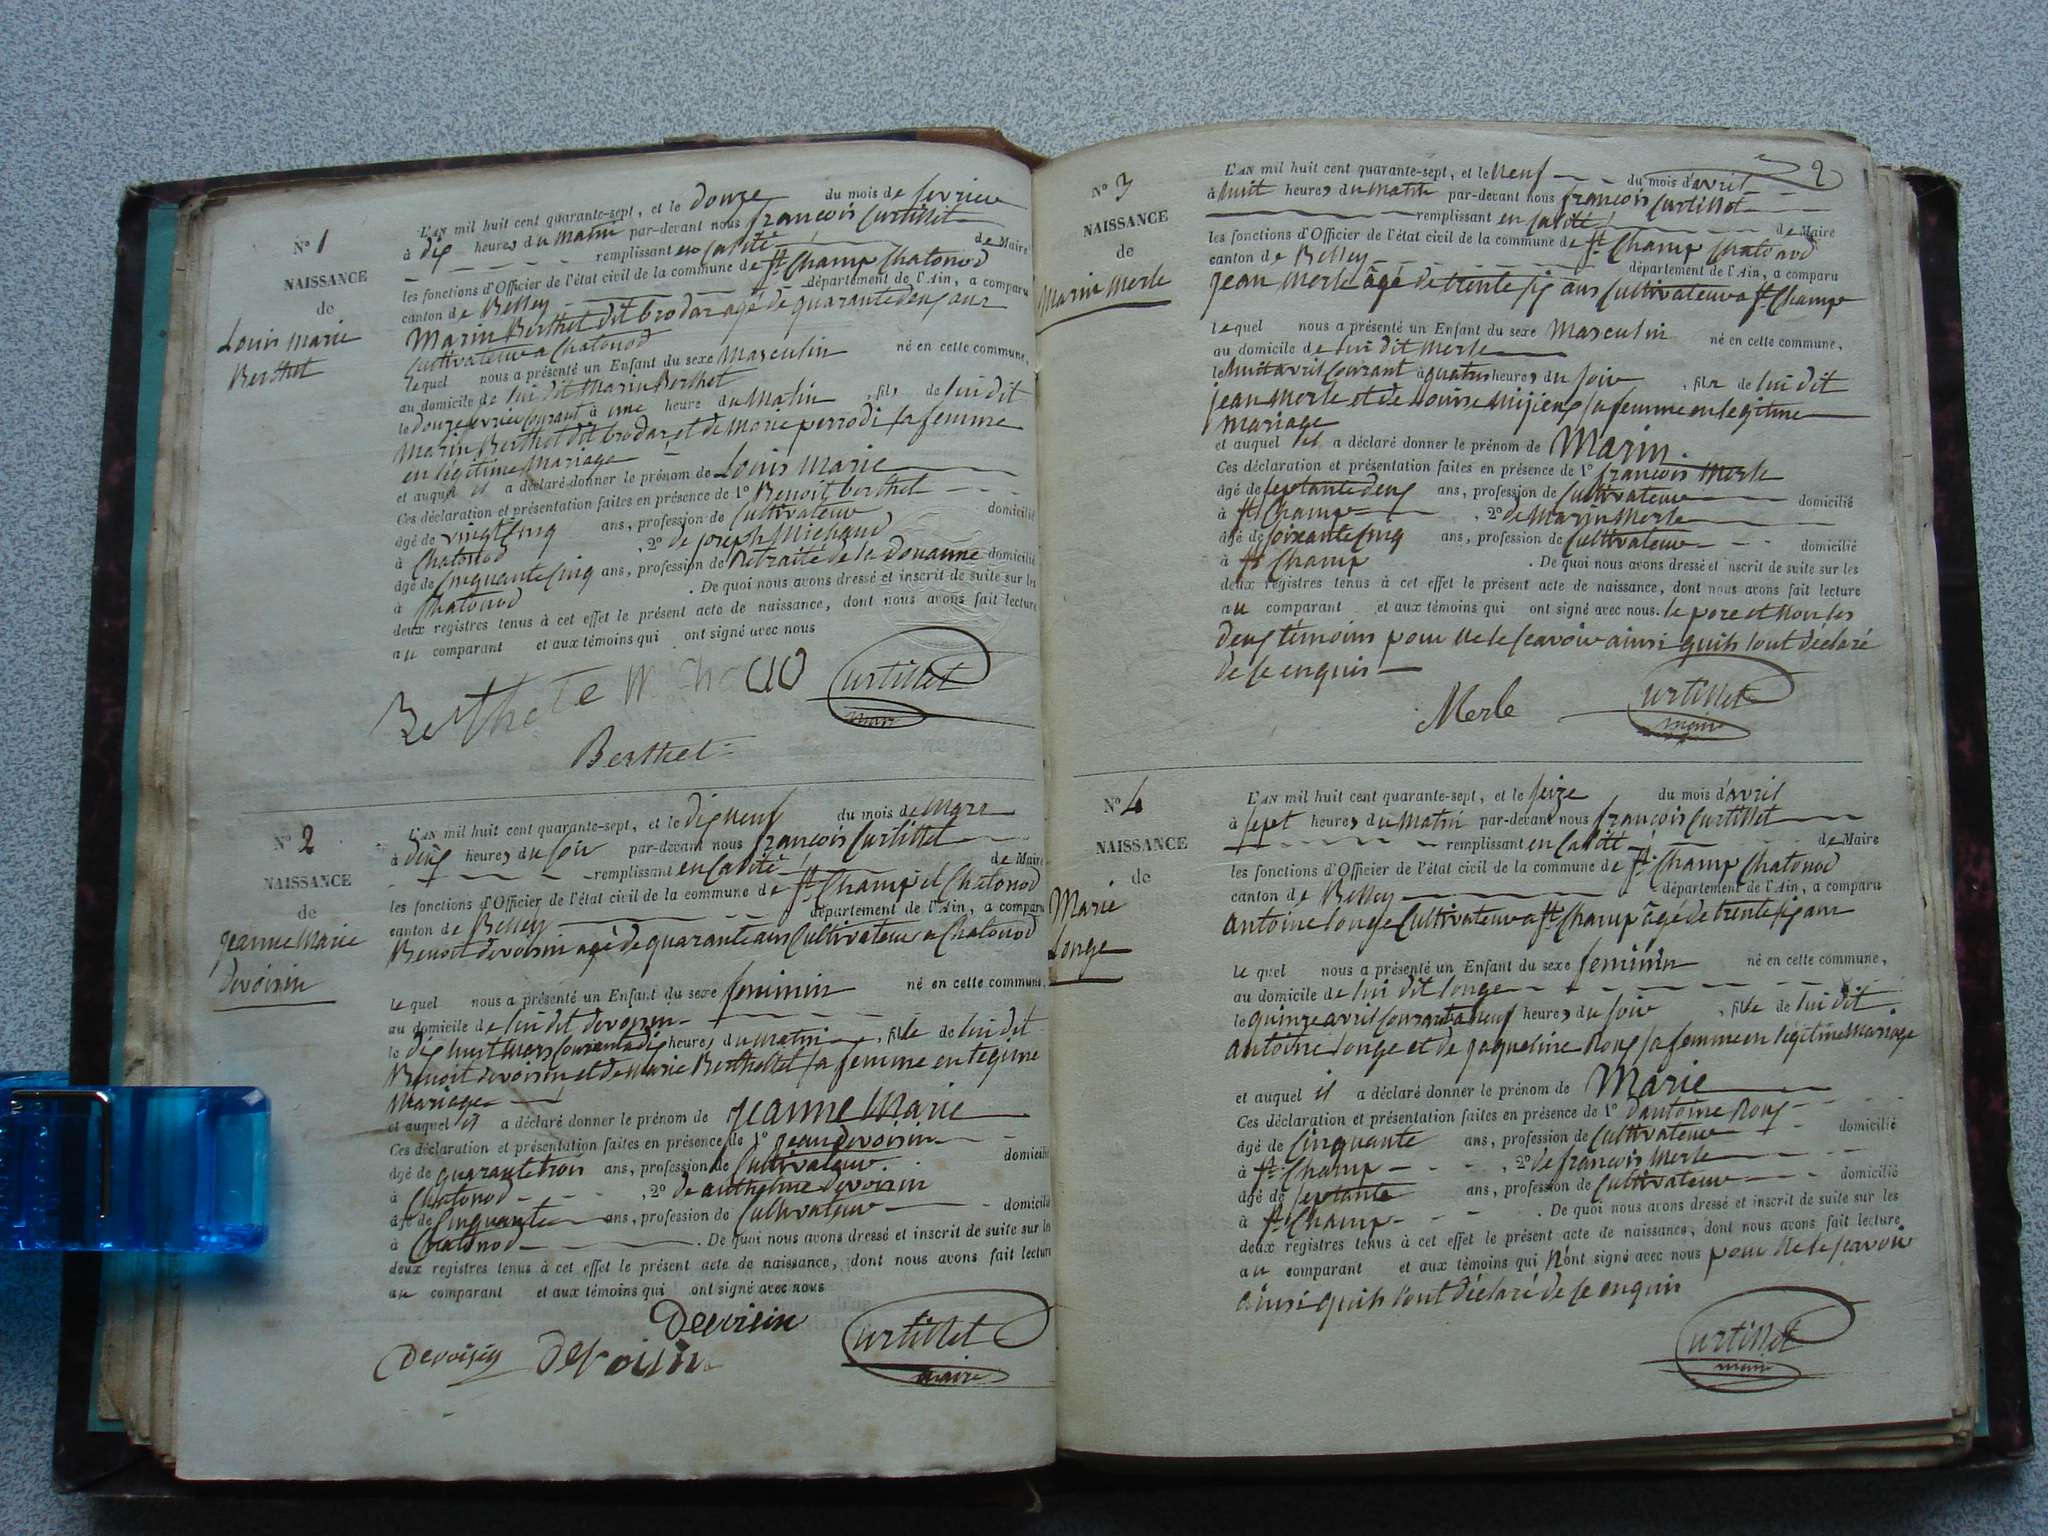 N° 1
NAISSANCE
de
Louis Marie
Berthet
L'AN mil huit cent quarante-sept, et le douze du mois de fevrier
à dix heures du matin par-devant nous françois Curtillet
remplissant en calité de Maire
les fonctions d'Officier de l'état civil de la commune de St Champ Chatonod
canton de Belley département de l'Ain, a comparu
Marin Berthet dit brodar agé de quarante deux ans
Cultivateur a Chatonod
le quel nous a présenté un Enfant du sexe Masculin né en cette commune,
au domicile de lui dit Marin Berthet
le douze fevrier courant à une heure du Matin, fils de lui dit
Marin Berthet dit brodar et de Marie perrodi sa femme
en légitime Mariage
et auquel il a déclaré donner le prénom de Louis Marie
Ces déclaration et présentation faites en présence de 1° Benoit berthet
âgé de vingt cinq ans, profession de Cultivateur domicilié
à Chatonod, 2° de joseph Michaud
âgé de Cinquante Cinq ans, profession de Retraité de la douanne domicilié
à Chatonod. De quoi nous avons dressé et inscrit de suite sur les
deux registres tenus à cet effet le présent acte de naissance, dont nous avons fait lecture
au comparant et aux témoins qui ont signé avec nous
Berthet Curtillet
maire
Berthet
N° 2
NAISSANCE
de
jeanne Marie
devoisin
L'AN mil huit cent quarante-sept, et le dix neuf du mois de Mars
à deux heures du soir par-devant nous françois Curtillet
remplissant en calité de Maire
les fonctions d'Officier de l'état civil de la commune de St Champ et Chatonod
canton de Belley département de l'Ain, a comparu
Benoit devoisin agé de quarante ans Cultivateur a Chatonod
le quel nous a présenté un Enfant du sexe feminin né en cette commune,
au domicile de lui dit devoisin
le dix huit mars courant à dix heures du matin, fille de lui dit
Benoit devoisin et de Marie Berthellet sa femme en legime
Mariage
et auquel il a déclaré donner le prénom de jeanne Marie
Ces déclaration et présentation faites en présence de 1° jean devoisin
âgé de quarante trois ans, profession de Cultivateur domicilié
à Chatonod, 2° de anthelme devoisin
âgé de Cinquante ans, profession de Cultivateur domicilié
à Chatonod. De quoi nous avons dressé et inscrit de suite sur les
deux registres tenus à cet effet le présent acte de naissance, dont nous avons fait lecture
au comparant et aux témoins qui ont signé avec nous
Devoisin
Devoisin devoisin Curtillet
maire
2
N° 3
NAISSANCE
de
Marin Merle
L'AN mil huit cent quarante-sept, et le neuf du mois d'avril
à huit heures du matin par-devant nous françois Curtillet
remplissant en calité de Maire
les fonctions d'Officier de l'état civil de la commune de St Champ Chatonod
canton de Belley département de l'Ain, a comparu
jean Merle âgé de trente six ans Cultivateur a St Champ
le quel nous a présenté un Enfant du sexe Masculin né en cette commune,
au domicile de lui dit Merle
le huit avril courant à quatre heures du soir, fils de lui dit
jean Merle et de Louise sa femme en legitime
mariage
et auquel il a déclaré donner le prénom de Marin
Ces déclaration et présentation faites en présence de 1° francois Merle
âgé de septante deux ans, profession de Cultivateur domicilié
à St Champ, 2° de Marin Merle
âgé de soixante cinq ans, profession de Cultivateur domicilié
à St Champ. De quoi nous avons dressé et inscrit de suite sur les
deux registres tenus à cet effet le présent acte de naissance, dont nous avons fait lecture
au comparant et aux témoins qui ont signé avec nous. le pere et non les
deux témoins pour ne le scavoir ainsi quils lont déclaré
de ce enquis
Merle Curtillet
maire
N° 4
NAISSANCE
de
Marie
Longe
L'AN mil huit cent quarante-sept, et le seize du mois d'avril
à sept heures du Matin par-devant nous françois Curtillet
remplissant en calité de Maire
les fonctions d'Officier de l'état civil de la commune de St Champ Chatonod
canton de Belley département de l'Ain, a comparu
antoine longe Cultivateur a St Champ âgé de trente six ans
le quel nous a présenté un Enfant du sexe feminin né en cette commune,
au domicile de lui dit longe
le quinze avril courant à neuf heures du soir, fille de lui dit
antoine longe et de jaqueline Roux sa femme en légitime Mariage
et auquel il a déclaré donner le prénom de Marie
Ces déclaration et présentation faites en présence de 1° d'antoine Roux
âgé de Cinquante ans, profession de Cultivateur domicilié
à St Champ, 2° de francois Merle
âgé de septante ans, profession de Cultivateur domicilié
à St Champ. De quoi nous avons dressé et inscrit de suite sur les
deux registres tenus à cet effet le présent acte de naissance, dont nous avons fait lecture
au comparant et aux témoins qui n'ont signé avec nous pour ne le scavoir
ainsi quils lont déclaré de ce enquis
Curtillet
maire